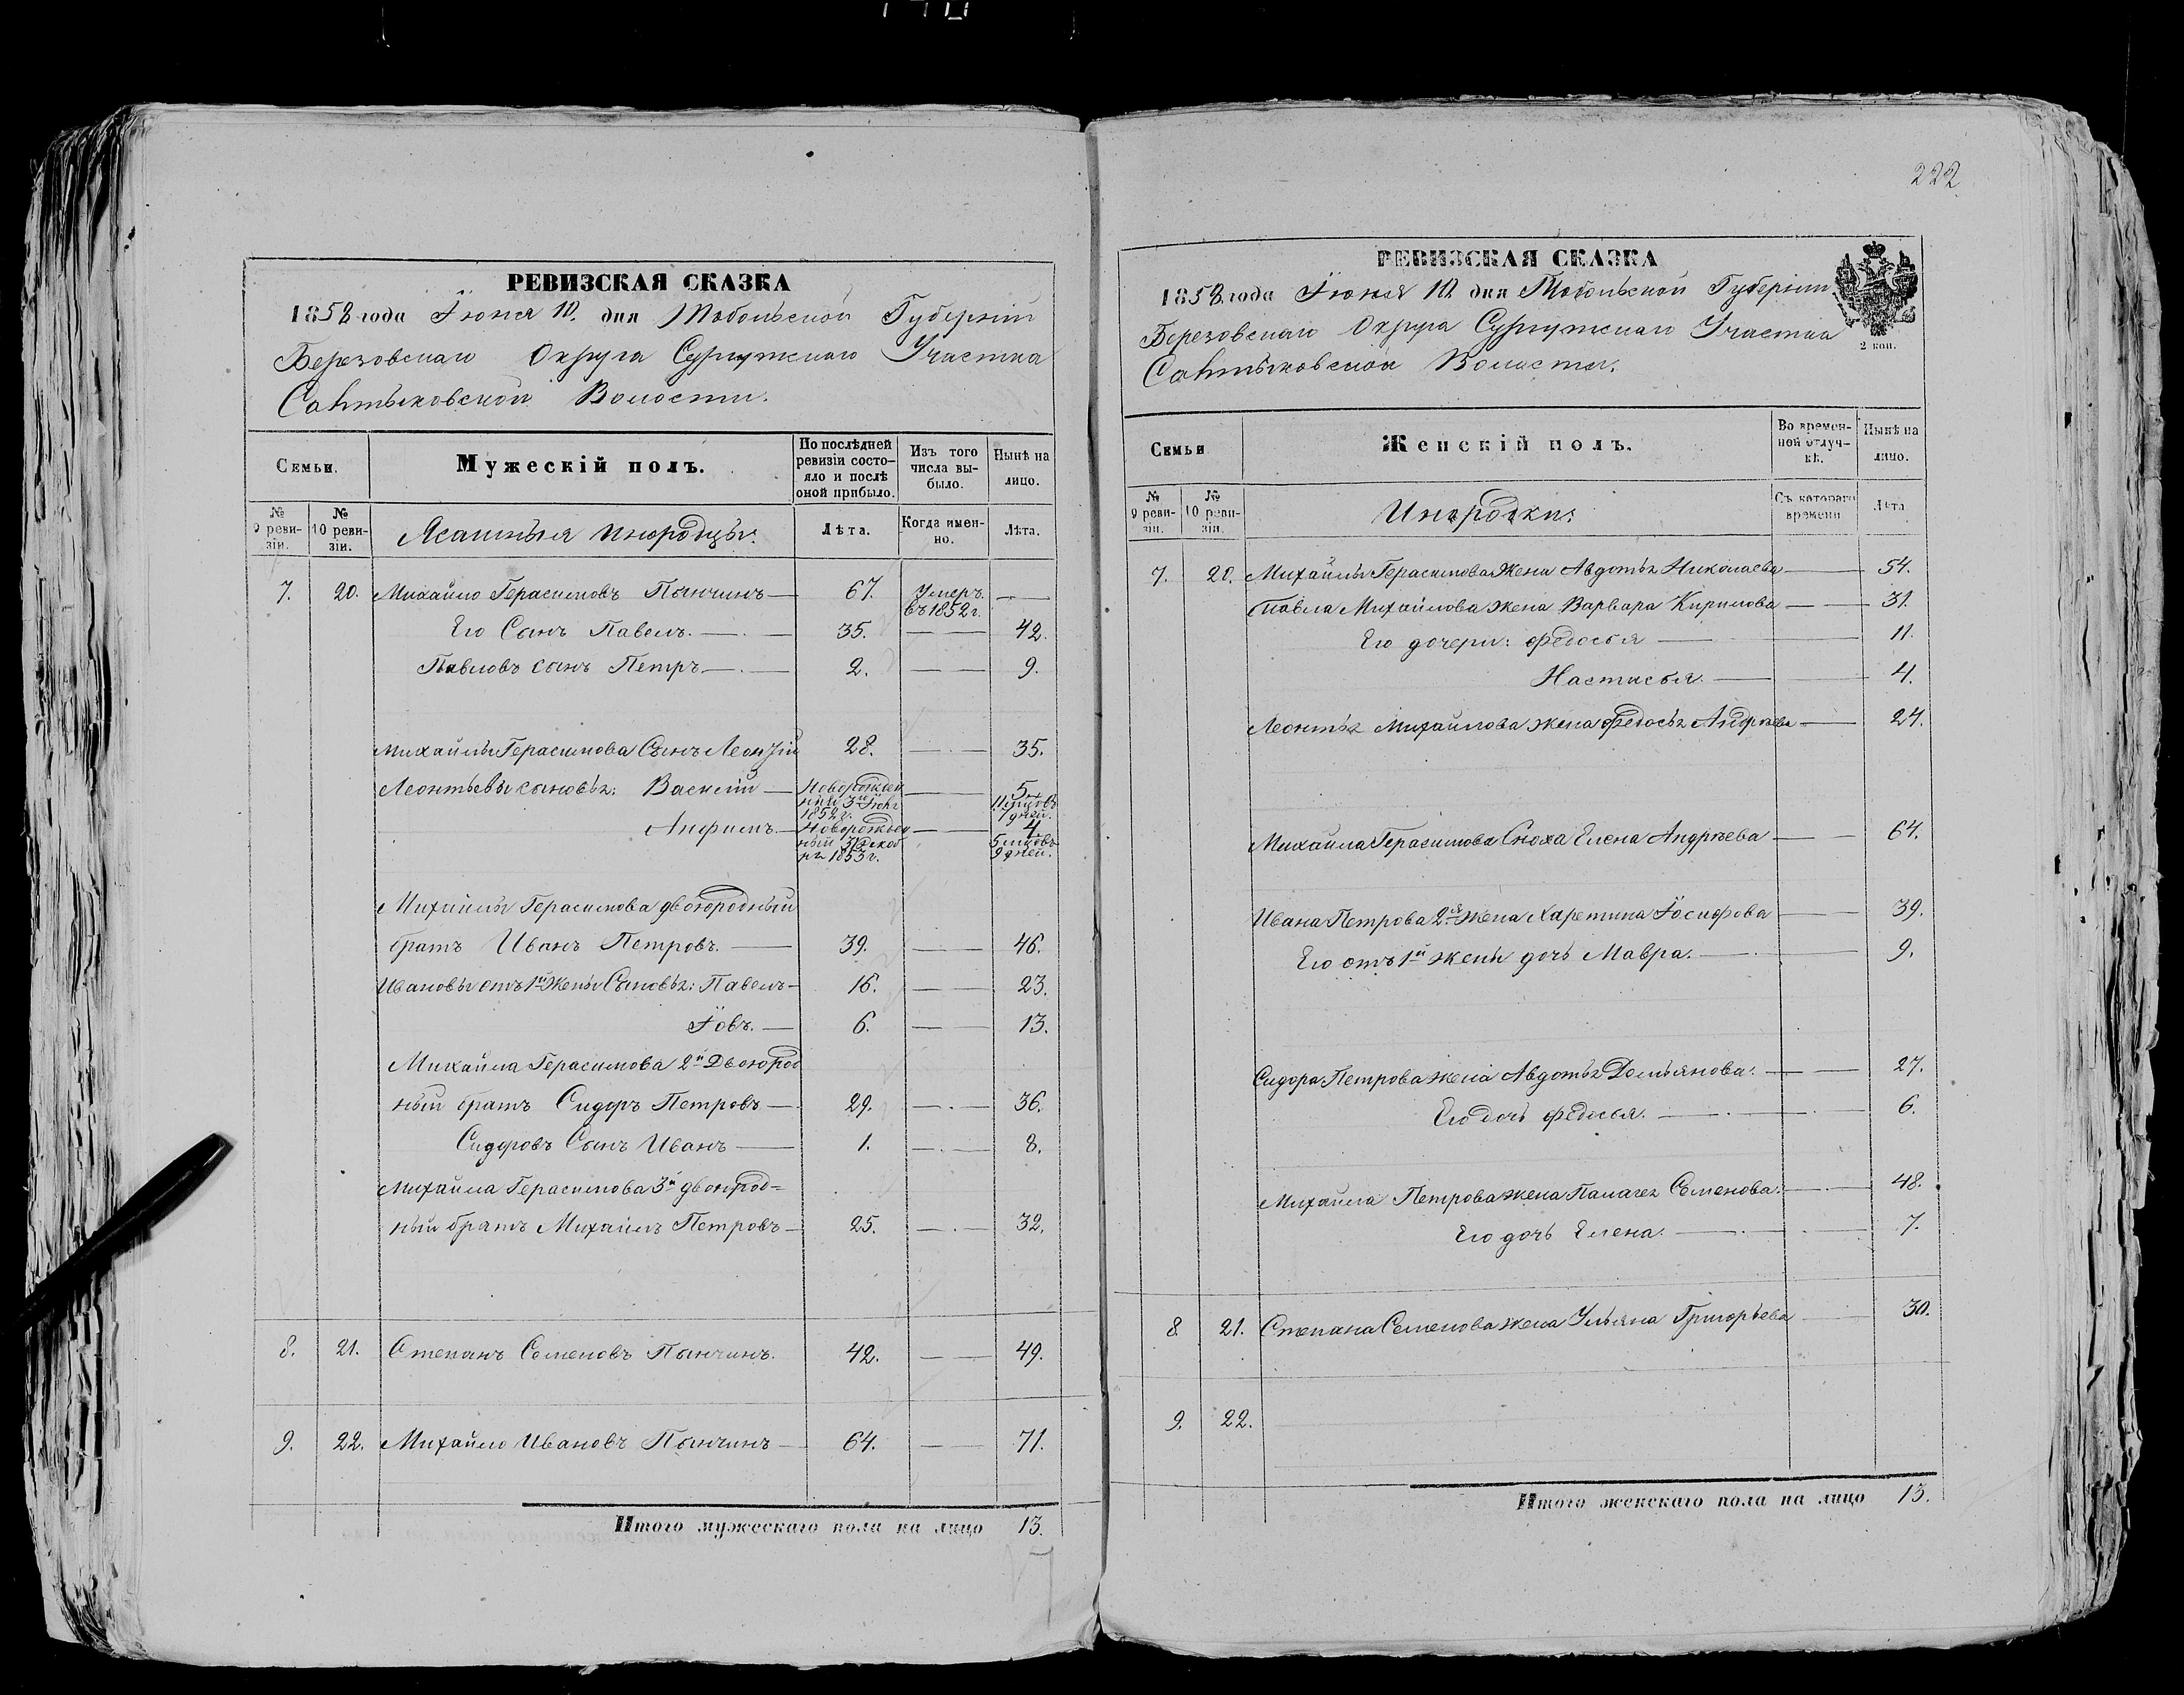 РЕВИЗСКАЯ СКАЗКА
1858 года Іюня 10. дня Тобольской Губерніи
Березовскаго Округа Сургутскаго Участка
Салтыковской Волости.
Семьи.
Мужескій полъ.
По послѣдней ревизіи состояло и послѣ оной прибыло.
Изъ того числа выбыло.
Нынѣ на лицо.
№ 9 ревизіи.
№ 10 ревизіи.
Ясашныя инородцы.
Лѣта.
Когда именно.
Лѣта.
7. 20. Михайло Герасимовъ Пынчинъ 67. Умеръ въ 1852 г.
Его Сынъ Павелъ. 35. 42.
Павловъ сынъ Петръ 2. 9.
Михайлы Герасимова Сынъ Леонтій 28. 35.
Леонтьевы сыновья: Василій Новорожденный 3й Іюня 1852 г. 5 л. 11 мѣсцовъ 7 дней.
Анфимъ Новорожденный 31 декабря 1853 г. 4. 5 мѣсцовъ 9 дней.
Михайлы Герасимова двоюродный
братъ Иванъ Петровъ. 39. 46.
Ивановы отъ 1й Жены Сыновья: Павелъ 16. 23.
Іовъ. 6. 13.
Михайла Герасимова 2й Двоюрод
ный братъ Сидоръ Петровъ 29. 36.
Сидоровъ Сынъ Иванъ 1. 8.
Михайла Герасимова 3й двоюрод=
ный братъ Михайлъ Петровъ 25. 32.
8. 21. Степанъ Семеновъ Пынчинъ. 42. 49.
9. 22. Михайло Ивановъ Пынчинъ 64. 71.
Итого мужескаго пола на лицо 13.
222
РЕВИЗСКАЯ СКАЗКА
1858 года Іюня 10. дня Тобольской Губерніи
Березовскаго Округа Сургутскаго Участка
2 коп.
Салтыковской Волости.
Семьи
Женскій полъ.
Во временной отлучкѣ.
Нынѣ на лицо.
№ 9 ревизіи.
№ 10 ревизіи.
Инородки.
Съ котораго времени
Лѣта
7. 20. Михайлы Герасимова Жена Авдотья Николаева 54.
Павла Михайлова жена Варвара Кирилова 31.
Его дочери: Федосья 11.
Настасья. 4.
Леонтья Михайлова жена Федосья Андрѣева 24.
Михайла Герасимова Сноха Елена Андрѣева 64.
Ивана Петрова 2я Жена Харетина Іосифова 39.
Его отъ 1й жены дочь Мавра. 9.
Сидора Петрова жена Авдотья Демьянова. 27.
Его дочь Федосья. 6.
Михайла Петрова жена Палагея Семенова. 48.
Его дочь Елена. 7.
8 21. Степана Семенова жена Ульяна Григорьева 30.
9. 22.
Итого женскаго пола на лицо 13.